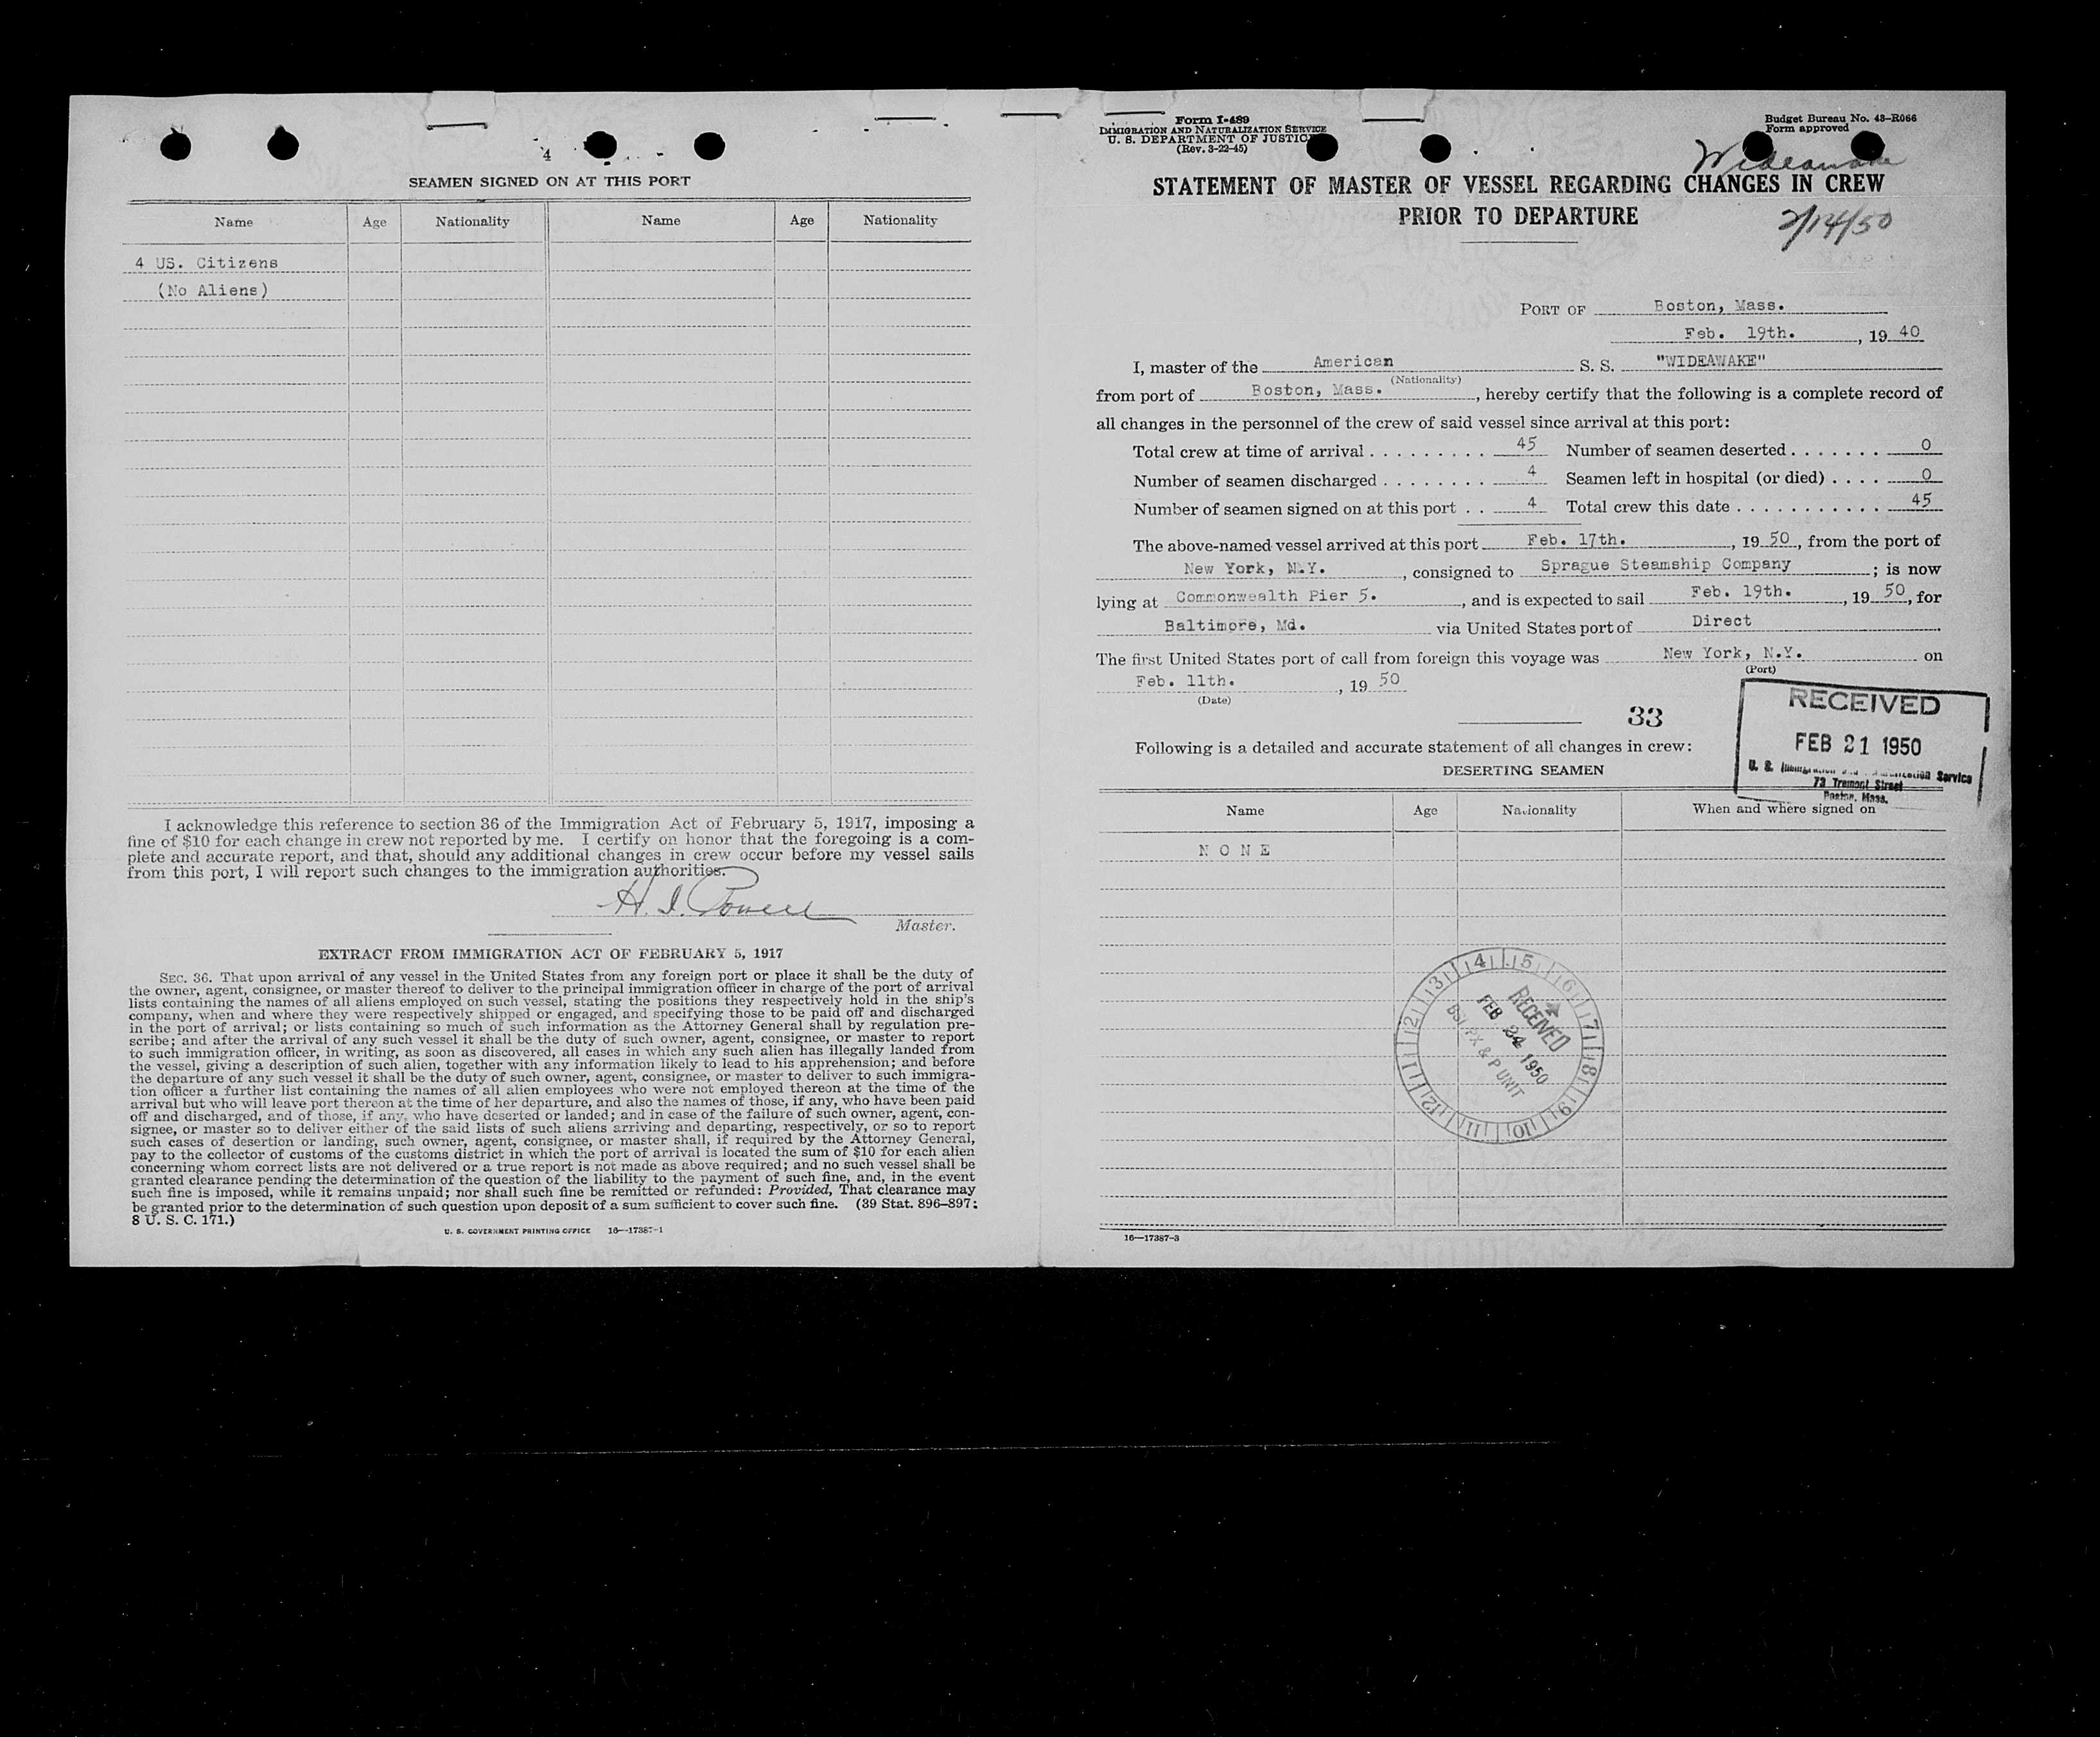 4
SEAMEN SIGNED ON AT THIS PORT
Name Age Nationality Name Age Nationality
4 US. Citizens
(No Aliens)
I acknowledge this reference to section 36 of the Immigration Act of February 5, 1917, imposing a
fine of $10 for each change in crew not reported by me. I certify on honor that the foregoing is a com-
plete and accurate report, and that, should any additional changes in crew occur before my vessel sails
from this port, I will report such changes to the immigration authorities.
H. I. Powell
Master.
EXTRACT FROM IMMIGRATION ACT OF FEBRUARY 5, 1917
SEC. 36. That upon arrival of any vessel in the United States from any foreign port or place it shall be the duty of
the owner, agent, consignee, or master thereof to deliver to the principal immigration officer in charge of the port of arrival
lists containing the names of all aliens employed on such vessel, stating the positions they respectively hold in the ship's
company, when and where they were respectively shipped or engaged, and specifying those to be paid off and discharged
in the port of arrival; or lists containing so much of such information as the Attorney General shall by regulation pre-
scribe; and after the arrival of any such vessel it shall be the duty of such owner, agent, consignee, or master to report
to such immigration officer, in writing, as soon as discovered, all cases in which any such alien has illegally landed from
the vessel, giving a description of such alien, together with any information likely to lead to his apprehension; and before
the departure of any such vessel it shall be the duty of such owner, agent, consignee, or master to deliver to such immigra-
tion officer a further list containing the names of all alien employees who were not employed thereon at the time of the
arrival but who will leave port thereon at the time of her departure, and also the names of those, if any, who have been paid
off and discharged, and of those, if any, who have deserted or landed; and in case of the failure of such owner, agent, con-
signee, or master so to deliver either of the said lists of such aliens arriving and departing, respectively, or so to report
such cases of desertion or landing, such owner, agent, consignee, or master shall, if required by the Attorney General,
pay to the collector of customs of the customs district in which the port of arrival is located the sum of $10 for each alien
concerning whom correct lists are not delivered or a true report is not made as above required; and no such vessel shall be
granted clearance pending the determination of the question of the liability to the payment of such fine, and, in the event
such fine is imposed, while it remains unpaid; nor shall such fine be remitted or refunded: Provided, That clearance may
be granted prior to the determination of such question upon deposit of a sum sufficient to cover such fine. (39 Stat. 896–897;
8 U. S. C. 171.)
U. S. GOVERNMENT PRINTING OFFICE 16—17387-1
Form I-489
IMMIGRATION AND NATURALIZATION SERVICE
U. S. DEPARTMENT OF JUSTICE
(Rev. 3-22-45)
Budget Bureau No. 43-R066
Form approved
Wideawake
STATEMENT OF MASTER OF VESSEL REGARDING CHANGES IN CREW
PRIOR TO DEPARTURE
2/14/50
PORT OF Boston, Mass.
Feb. 19th. , 19 40
I, master of the American S. S. "WIDEAWAKE"
(Nationality)
from port of Boston, Mass. , hereby certify that the following is a complete record of
all changes in the personnel of the crew of said vessel since arrival at this port:
Total crew at time of arrival . . . . . . . . . 45 Number of seamen deserted . . . . . . . 0
Number of seamen discharged . . . . . . . . 4 Seamen left in hospital (or died) . . . . 0
Number of seamen signed on at this port . . 4 Total crew this date . . . . . . . . . . . 45
The above-named vessel arrived at this port Feb. 17th. , 19 50, from the port of
New York, N.Y. , consigned to Sprague Steamship Company ; is now
lying at Commonwealth Pier 5. , and is expected to sail Feb. 19th. , 19 50, for
Baltimore, Md. via United States port of Direct
The first United States port of call from foreign this voyage was New York, N.Y. on
(Port)
Feb. 11th. , 19 50
(Date)
33
RECEIVED
FEB 21 1950
U. S. Immigration and Naturalization Service
73 Tremont Street
Boston, Mass.
Following is a detailed and accurate statement of all changes in crew:
DESERTING SEAMEN
Name Age Nationality When and where signed on
N O N E
4 5 6 7 8 9 10 11 12 1 2 3
RECEIVED
FEB 24 1950
& P UNIT
16—17387-3